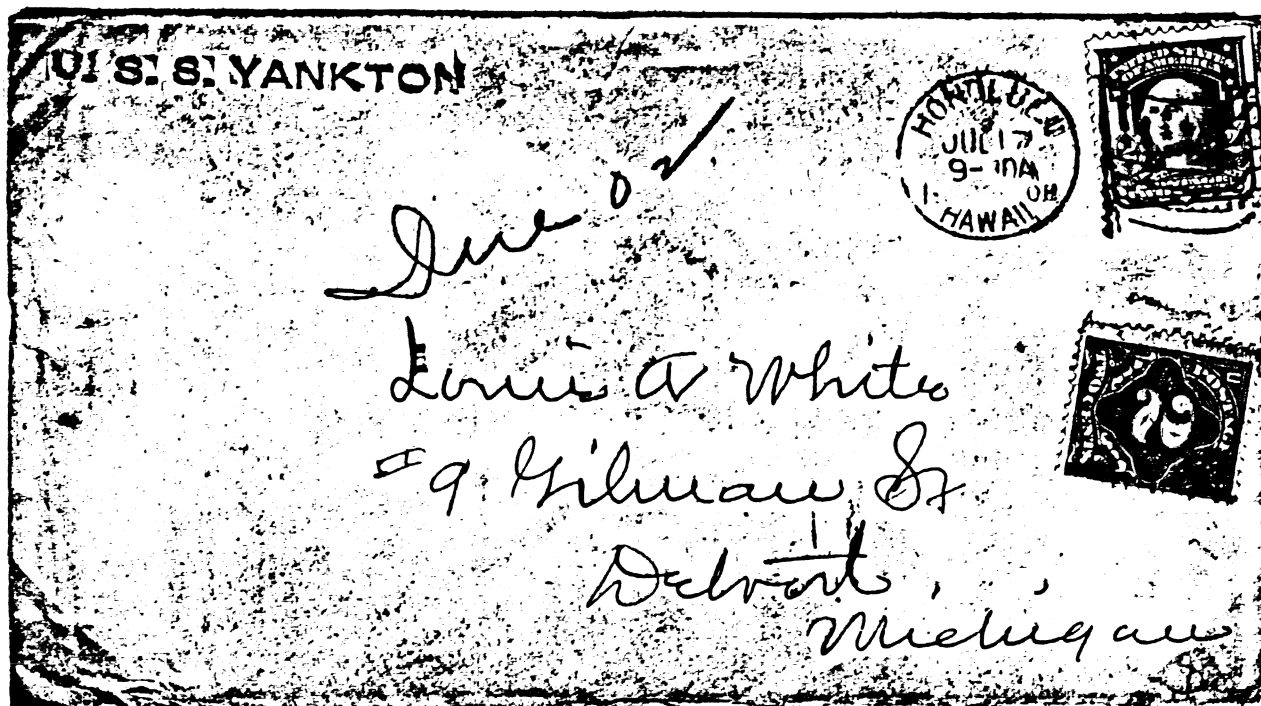 U. S. S. YANKTON
HONOLULU
JUL 17
9-
HAWAII
Due 02
Louis A White
#9 Gilman St
2
Detroit,
Michigan